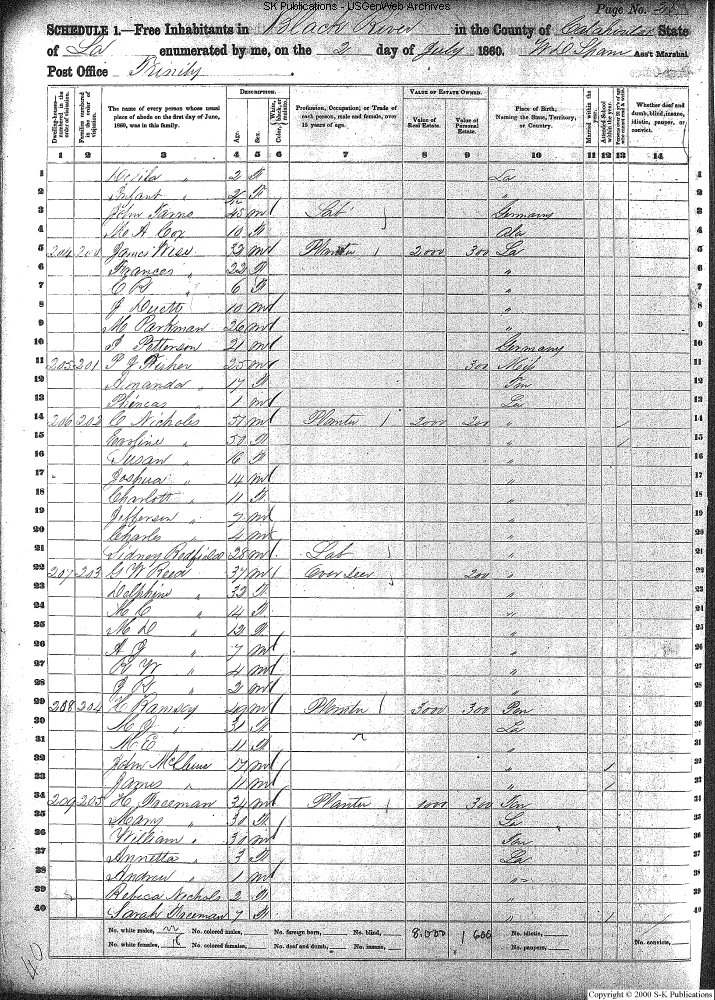 SK Publications - USGenWeb Archives
Page No.
SCHEDULE 1.—Free Inhabitants in Black River in the County of Catahoula State
of La enumerated by me, on the 2 day of July 1860. Ass't Marshal
Post Office Trinity
Dwelling-houses—numbered in the order of visitation.
Families numbered in the order of visitation.
The name of every person whose usual place of abode on the first day of June, 1860, was in this family.
DESCRIPTION.
Age.
Sex.
White, black, or mulatto.
Color,
Profession, Occupation, or Trade of each person, male and female, over 15 years of age.
VALUE OF ESTATE OWNED.
Value of Real Estate.
Value of Personal Estate.
Place of Birth, Naming the State, Territory, or Country.
Married within the year.
Attended School within the year.
Persons over 20 y'rs of age who cannot read & write.
Whether deaf and dumb, blind, insane, idiotic, pauper, or convict.
1 2 3 4 5 6 7 8 9 10 11 12 13 14
1 " 2 F La 1
2 Infant " F " 2
3 John 45 m Lab Germany 3
4 M A Cox 10 F Ala 4
5 204 200 James Wise 32 m Planter 2000 300 La 5
6 Frances " 22 F " 6
7 " 6 F " 7
8 J 10 m " 8
9 M Parkman 26 m " 9
10 Petterson 21 m Germany 10
11 205 201 P J Fisher 25 m 300 Miss 11
12 Amanda " 17 F 12
13 Phineas " 1 m La 13
14 206 202 C Nichols 51 m Planter 2000 200 " / 14
15 " 50 F " / 15
16 Susan " 16 F " 16
17 Joshua " 14 m " 17
18 Charlott " 11 F " 18
19 Jefferson " 7 m " 19
20 Charles " 4 m " 20
21 Sidney Redfield 28 m Lab " 21
22 207 203 G W Reed 37 m Overseer 200 " 22
23 Delphine " 32 F " 23
24 " 14 F " 24
25 M D " 12 F " 25
26 A J " 7 m " 26
27 " 4 m " 27
28 " 2 m " 28
29 208 204 Ramsey m Planter 3000 300 29
30 " 31 F La 30
31 M E " 11 F " 31
32 John 17 m " / 32
33 James " 11 m " / 33
34 209 205 H Freeman 34 m Planter 1000 300 34
35 Mary " 30 F La 35
36 William " 30 m 36
37 Annetta " 3 F La 37
38 Andrew " 1 m " 38
39 Rebeca Nichols 2 F 39
40 Sarah Freeman 7 F " / 40
No. white males, No. colored males, No. foreign born, No. blind, 8.000 1600 No. idiotic,
No. white females, 18 No. colored females, No. deaf and dumb, No. insane, No. paupers, No. convicts,
40
Copyright © 2000 S-K Publications